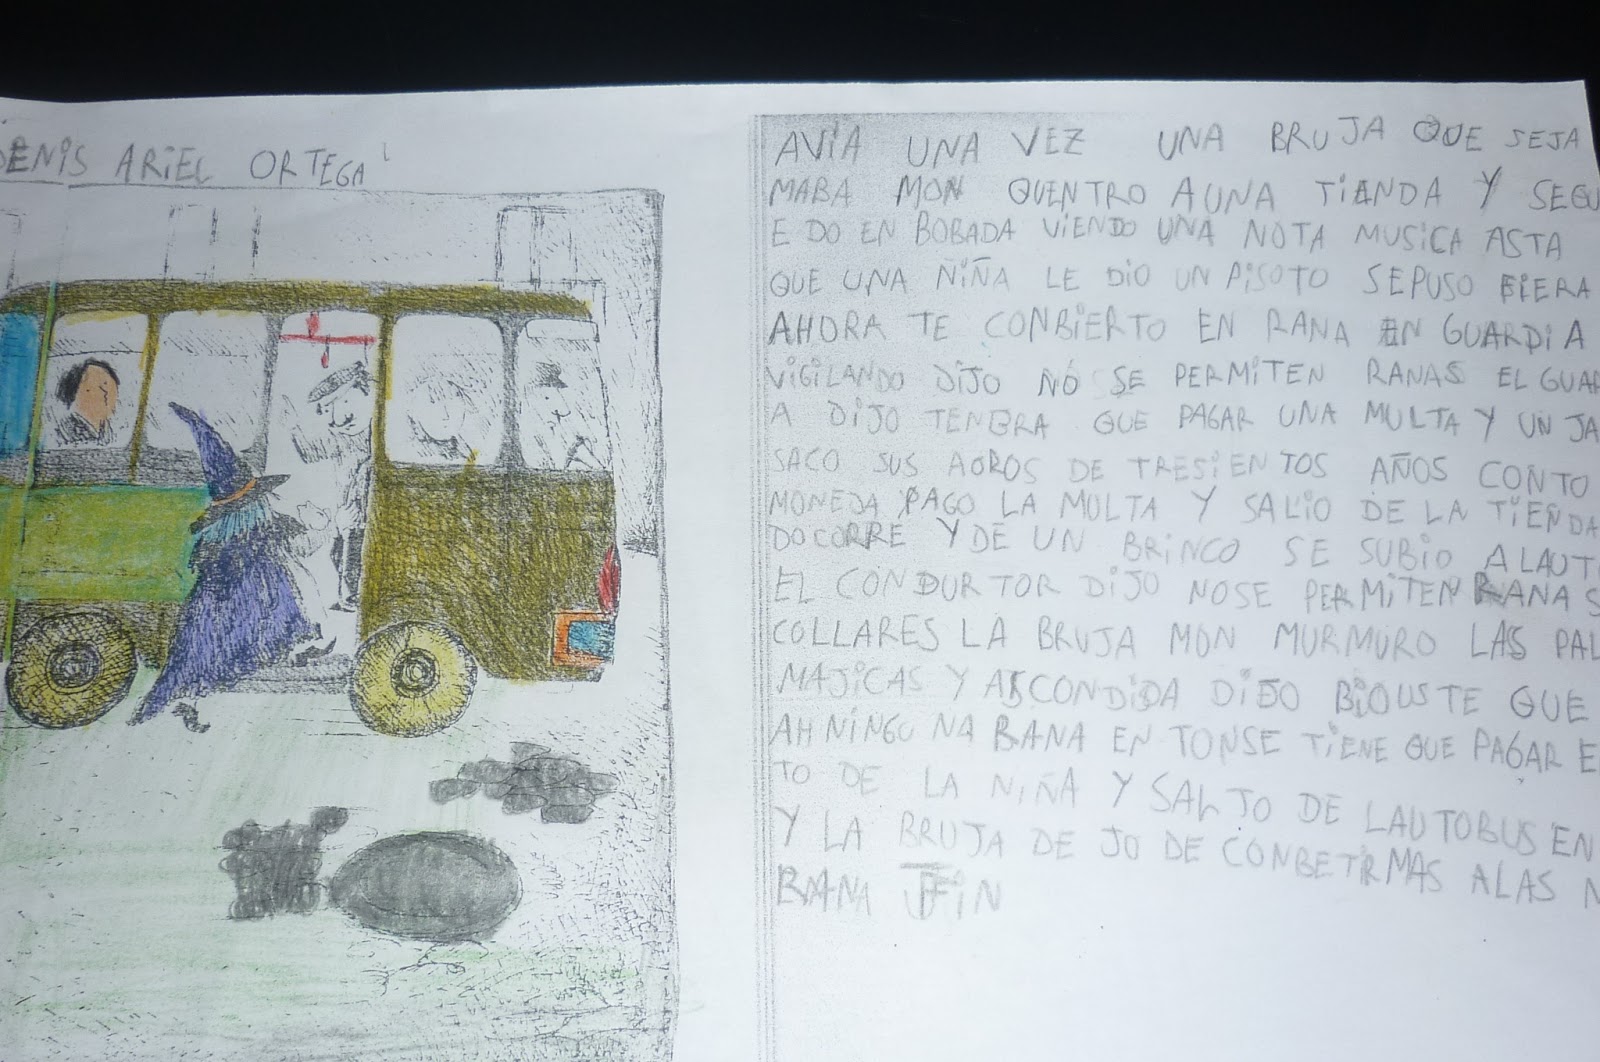 DENIS ARIEL ORTEGA
AVIA UNA VEZ UNA BRUJA QUE SEJA
MABA MON QUENTRO AUNA TIANDA Y SEGU
E DO EN BOBADA VIENDO UNA NOTA MUSICA ASTA
QUE UNA NIÑA LE DIO UN PISOTO SEPUSO FIERA
AHORA TE CONBIERTO EN RANA EN GUARDIA
VIGILANDO DIJO NO SE PERMITEN RANAS EL GUAR
A DIJO TENDRA QUE PAGAR UNA MULTA Y UN JA
SACO SUS AOROS DE TRESIENTOS AÑOS CONTO
MONEDA PAGO LA MULTA Y SALIO DE LA TIENDA
DOCORRE Y DE UN BRINCO SE SUBIO ALAUT
EL CONDURTOR DIJO NOSE PERMITEN RANAS
COLLARES LA BRUJA MON MURMURO LAS PAL
MAJICAS Y ASCONDIDA DIJO BIOUSTE QUE
AH NINGUNA BANA EN TONSE TIENE QUE PAGAR E
TO DE LA NIÑA Y SALJO DE LAUTOBUS EN
Y LA BRUJA DE JO DE CONBETIRMAS ALAS N
RANA FIN